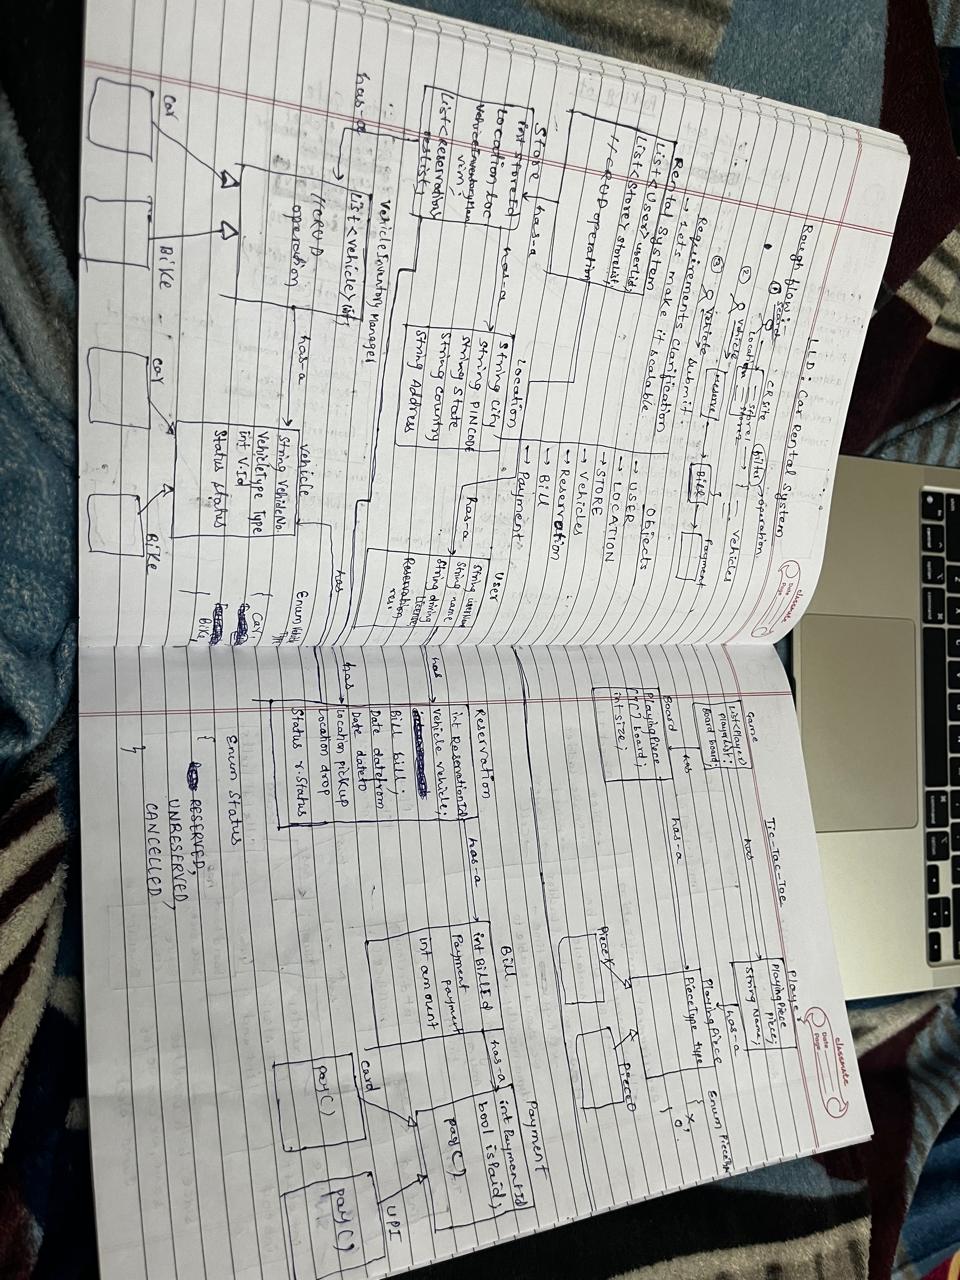 LLD: Car Rental System
classmate
Date
Page
Rough flow:-
① Search
Location
CR site
store1
store2
filter
operation.
Vehicles
②
Vehicle
Reserve
Bill
Payment
③
Vehicle
Submit.
Requirements Clarification
→ Lets make it scalable.
Rental System
List<User> userList;
List<Store> storeList;
//CRUD operation
Objects
→ USER
→ LOCATION
→ STORE
→ Vehicles
→ Reservation
→ Bill
→ Payment
Store
has-a
int StoreId
Location Loc
VehicleInventoryMan
vim;
List<Reservation>
resList;
has-a
Location
String City
String PINCODE
String State
String Country
String Address
has-a
User
String userName
String name
String driving
License
Reservation
res.
has-a
VehicleInventoryManager
List<vehicle> list;
//CRUD
operation
has-a
Car
BiKe
Vehicle
String VehicleNo.
VehicleType Type
int V.Id
Status status
has
Car
BiKe
Enum Vehicle
Type
{ Car,
Bike,
}
Tic-Tac-Toe
classmate
Date
Page
Game
List<Player>
playerList;
Board board;
has
Player
PlayingPiece
Piece;
String Name;
has-a
has
Board
PlayingPiece
[][] board;
int size;
has-a
PlayingPiece
PieceType type
Enum PieceType
{
X,
O
}
PieceX
PieceO
has
has
Reservation
int ReservationId
Vehicle vehicle;
Bill bill;
Date datefrom
Date dateto
Location pickup
Location drop
Status r.Status
has-a
Bill
int BillId
Payment
payment
int amount
has-a
Payment
int PaymentId
bool isPaid;
pay()
card
pay()
UPI
pay()
Enum Status
{
RESERVED,
UNRESERVED,
CANCELLED
}
control
option
command
command
option